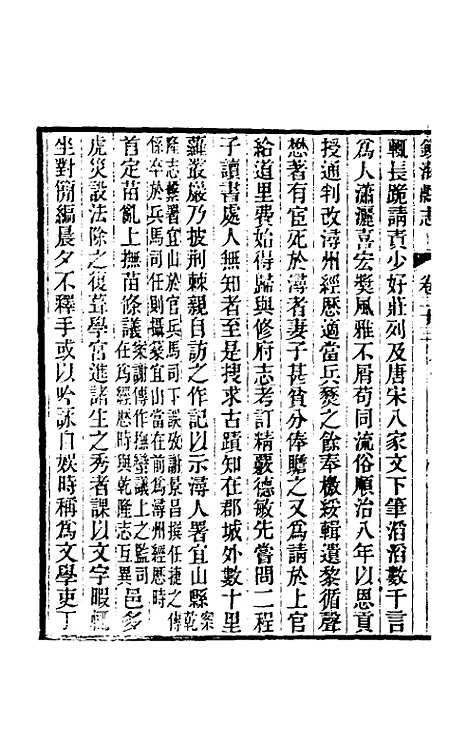 鎮海縣志 卷二十
輒長跪請責少好莊列及唐宋八家文下筆滔滔數千言
爲人瀟灑喜宏奬風雅不屑苟同流俗順治八年以恩貢
授通判改潯州經歷適當兵燹之餘奉檄綏輯遺黎循聲
懋著有宦死於潯者妻子甚貧分俸贍之又爲請於上官
給道里費始得歸與修府志考訂精覈德敏先嘗問二程
子讀書處人無知者至是搜求古蹟知在郡城外數十里
蘿叢巖乃披荆棘親自訪之作記以示潯人署宜山縣案乾
隆志繫署宜山於官兵馬司下誤攷謝景昌撰任捷之傳
係卒於兵馬司任所則攝篆宜山當在前爲潯州經歷時
首定苗亂上撫苗條議案謝傳作撫蠻議上之監司
在爲經歷時與乾隆志互異邑多
虎災設法除之復葺學宮進諸生之秀者課以文字暇輒
坐對簡編晨夕不釋手或以吟詠自娛時稱爲文學吏丁